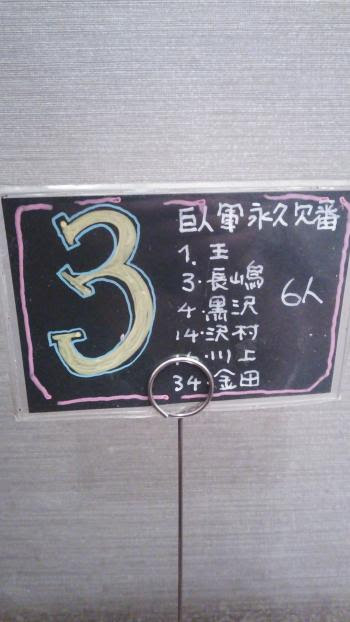 3
巨人軍永久欠番
1. 王
3. 長嶋
4. 黒沢
14. 沢村
川上
34. 金田
6人